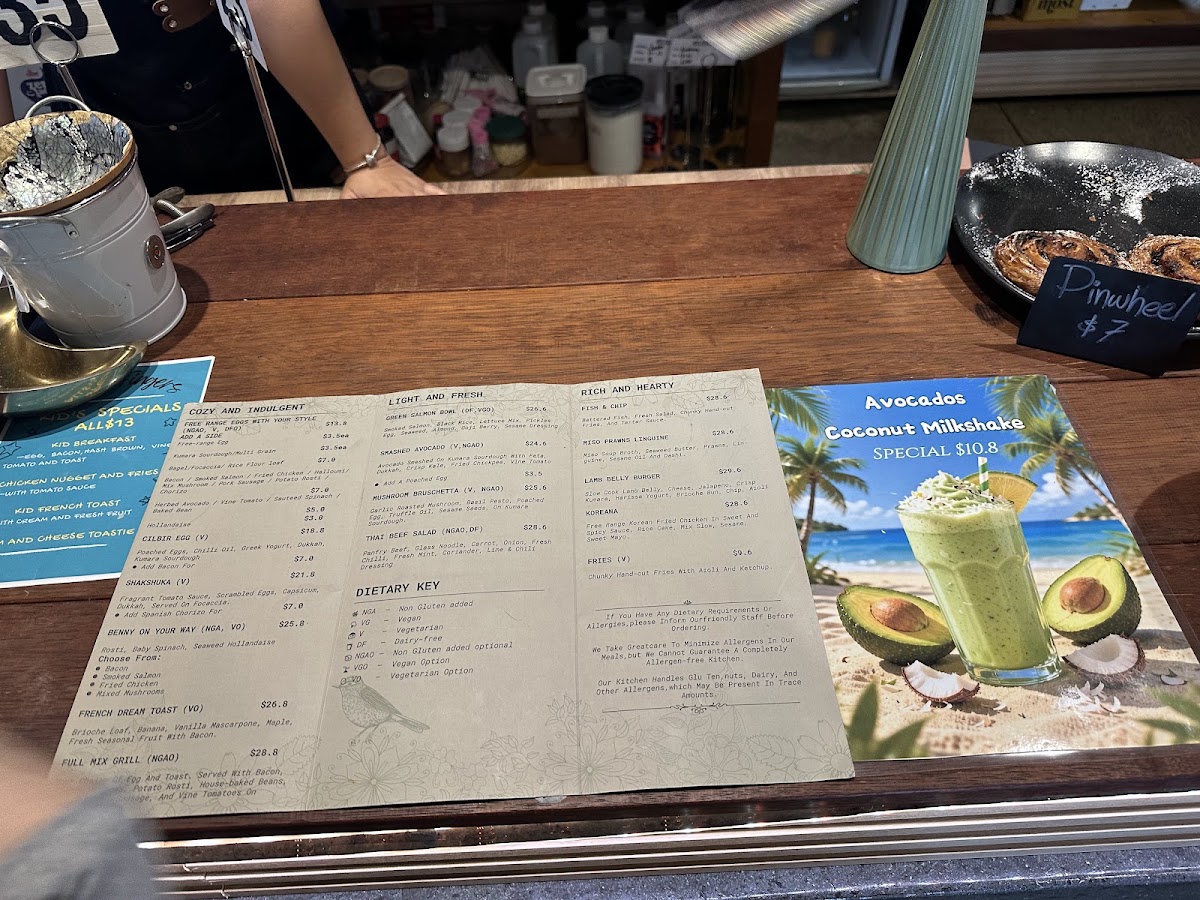 35
ND'S SPECIALS
ALL $13
KID BREAKFAST
—EGG, BACON, HASH BROWN, VINE
TOMATO AND TOAST
CHICKEN NUGGET AND FRIES
—WITH TOMATO SAUCE
KID FRENCH TOAST
WITH CREAM AND FRESH FRUIT
AND CHEESE TOASTIE
COZY AND INDULGENT
FREE RANGE EGGS WITH YOUR STYLE $13.8
(NGAO, V, DFO)
ADD A SIDE $3.5ea
Free-range Egg
$3.5ea
Kumara Sourdough/Multi Grain
$7.0
Bagel/Focaccia/ Rice Flour loaf
Bacon / Smoked Salmon / Fried Chicken / Halloumi/
Mix Mushroom / Pork Sausage / Potato Rosti /
Chorizo
$7.0
Herbed Avocado / Vine Tomato / Sauteed Spinach /
Baked Bean
$5.0
Hollandaise $3.0
CILBIR EGG (V) $18.8
Poached Eggs, Chilli Oil, Greek Yogurt, Dukkah,
Kumara Sourdough
● Add Bacon For $7.0
SHAKSHUKA (V) $21.8
Fragrant Tomato Sauce, Scrambled Eggs, Capsicum,
Dukkah, Served On Focaccia.
● Add Spanish Chorizo For $7.0
BENNY ON YOUR WAY (NGA, VO) $25.8
Rosti, Baby Spinach, Seaweed Hollandaise
Choose From:
● Bacon
● Smoked Salmon
● Fried Chicken
● Mixed Mushrooms
FRENCH DREAM TOAST (VO) $26.8
Brioche Loaf, Banana, Vanilla Mascarpone, Maple,
Fresh Seasonal Fruit With Bacon.
FULL MIX GRILL (NGAO) $28.8
Of Egg And Toast, Served With Bacon,
Potato Rosti, House-baked Beans,
And Vine Tomatoes On
LIGHT AND FRESH
GREEN SALMON BOWL (DF,VGO) $26.6
Smoked Salmon, Black Rice, Lettuce Mix, Pickles
Egg, Seaweed, Almond, Goji Berry, Sesame Dressing
SMASHED AVOCADO (V,NGAO) $24.6
Avocado Smashed On Kumara Sourdough With Feta,
Dukkah, Crisp Kale, Fried Chickpea, Vine Tomato
● Add A Poached Egg $3.5
MUSHROOM BRUSCHETTA (V, NGAO) $25.6
Garlic Roasted Mushroom, Basil Pesto, Poached
Egg, Truffle Oil, Sesame Seeds, On Kumara
Sourdough.
THAI BEEF SALAD (NGAO,DF) $28.6
Panfry Beef, Glass Noodle, Carrot, Onion, Fresh
Chilli, Fresh Mint, Coriander, Lime & Chili
Dressing
DIETARY KEY
NGA — Non Gluten added
VG — Vegan
V — Vegetarian
DF — Dairy-free
NGAO — Non Gluten added optional
VGO — Vegan Option
Vegetarian Option
RICH AND HEARTY
FISH & CHIP $28.6
Battered Fish, Fresh Salad, Chunky Hand-cut
Fries, And Tartar Sauce
MISO PRAWNS LINGUINE $28.6
Miso Soup Broth, Seaweed Butter, Prawns, Lin-
guine, Sesame Oil And Dashi.
LAMB BELLY BURGER $29.6
Slow Cook Lamb Belly, Cheese, Jalapeno, Crisp
Harisse Yogurt, Brioche Bun, Chip, Aioli
KOREANA $28.6
Free Range Korean Fried Chicken In Sweet And
Spicy Sauce, Rice Cake, Mix Slow, Sesame,
Sweet Mayo.
FRIES (V) $9.6
Chunky Hand-cut Fries With Aioli And Ketchup.
If You Have Any Dietary Requirements Or
Allergies,please Inform Ourfriendly Staff Before
Ordering.
We Take Greatcare To Minimize Allergens In Our
Meals,but We Cannot Guarantee A Completely
Allergen-free Kitchen.
Our Kitchen Handles Glu Ten,nuts, Dairy, And
Other Allergens,which May Be Present In Trace
Amounts.
Avocados
Coconut Milkshake
SPECIAL $10.8
Pinwheel
$7